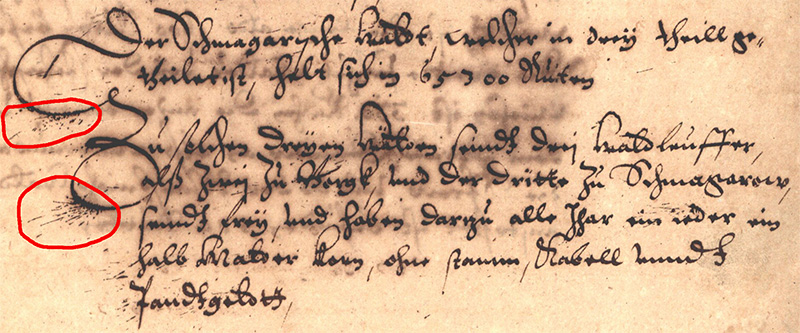 Der Schmagarische Waldt, welcher in drey theill ge=
theilet ist, helt sich in 65700 Ruten
Zu solchen dreyen Wälden seindt drei Waldleuffer,
alß zwei zu Borgk und der dritte zu Schmagorow,
seindt frey, und haben darzu alle Jhar ein ieder ein
halb Malder korn, ohne stamm, Nabell unndt
Pandtgeldt,